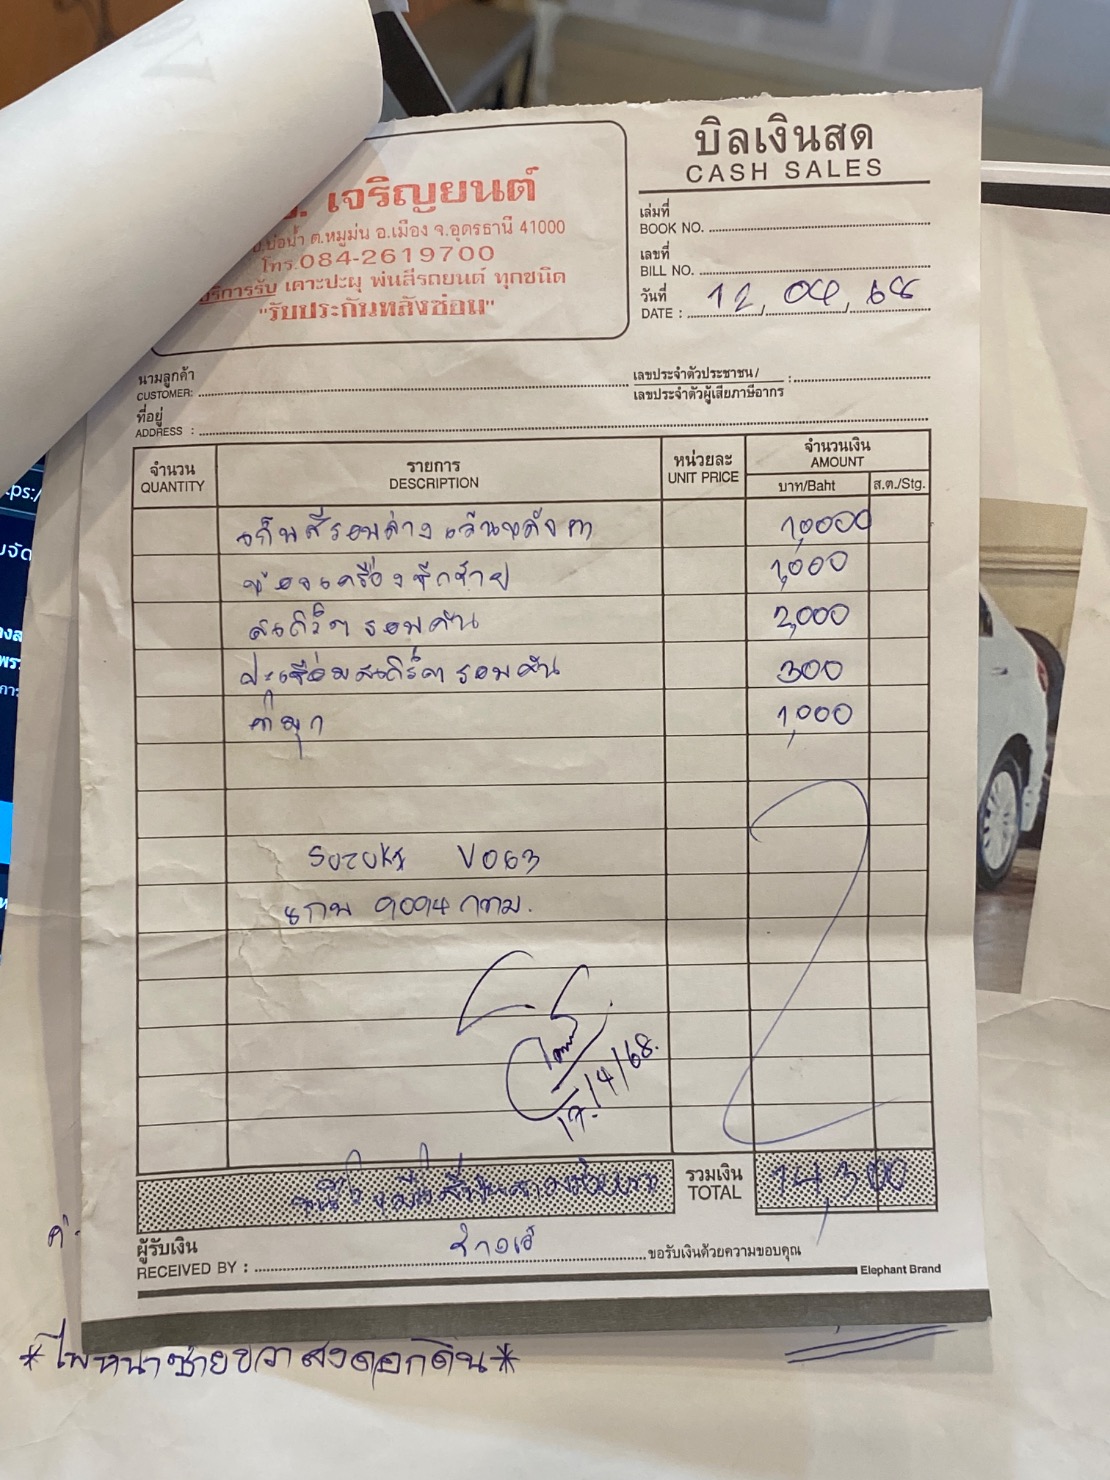 บิลเงินสด
CASH SALES
เจริญยนต์
ต.หมูม่น อ.เมือง จ.อุดรธานี 41000
โทร.084-2619700
บริการรับ เคาะปะผุ พ่นสีรถยนต์ ทุกชนิด
"รับประกันหลังซ่อม"
เล่มที่
BOOK NO.
เลขที่
BILL NO.
วันที่
DATE : 12, 04, 68
นามลูกค้า
CUSTOMER:
เลขประจำตัวประชาชน/
เลขประจำตัวผู้เสียภาษีอากร
ที่อยู่
ADDRESS :
จำนวน รายการ หน่วยละ จำนวนเงิน
QUANTITY DESCRIPTION UNIT PRICE AMOUNT
บาท/Baht ส.ต./Stg.
เก็บสีรอบล่าง 10,000
ห้องเครื่องซีกซ้าย 1,000
สเกิร์ตรอบคัน 2,000
ปะเชื่อมสเกิร์ตรอบคัน 300
ค่ามุก 1,000
Suzuki V063
9094 กทม.
17/4/68.
รวมเงิน
TOTAL 14,300
ผู้รับเงิน
RECEIVED BY : ช่างเอ้ ขอรับเงินด้วยความขอบคุณ
Elephant Brand
*ไฟหน้าซ้ายขวา ส่งดอกดิน*